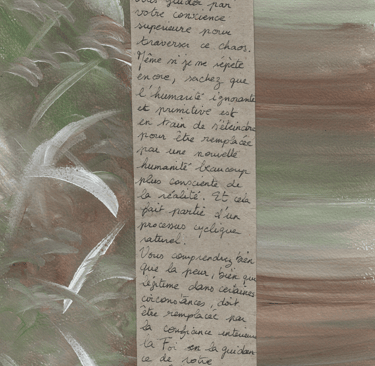 vous guider par
votre conscience
supérieure pour
traverser ce chaos.
Même si je me répète
encore, sachez que
l'humanité ignorante
et primitive est
en train de s'éteindre
pour être remplacée
par une nouvelle
humanité beaucoup
plus consciente de
la réalité. Et cela
fait partie d'un
processus cyclique
naturel.
Vous comprendrez bien
que la peur, bien que
légitime dans certaines
circonstances, doit
être remplacée par
la confiance intérieure
la Foi en la guidan
ce de votre